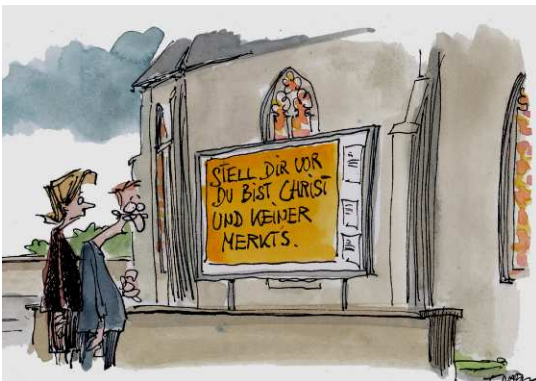 STELL DIR VOR
DU BIST CHRIST
UND KEINER
MERKTS.